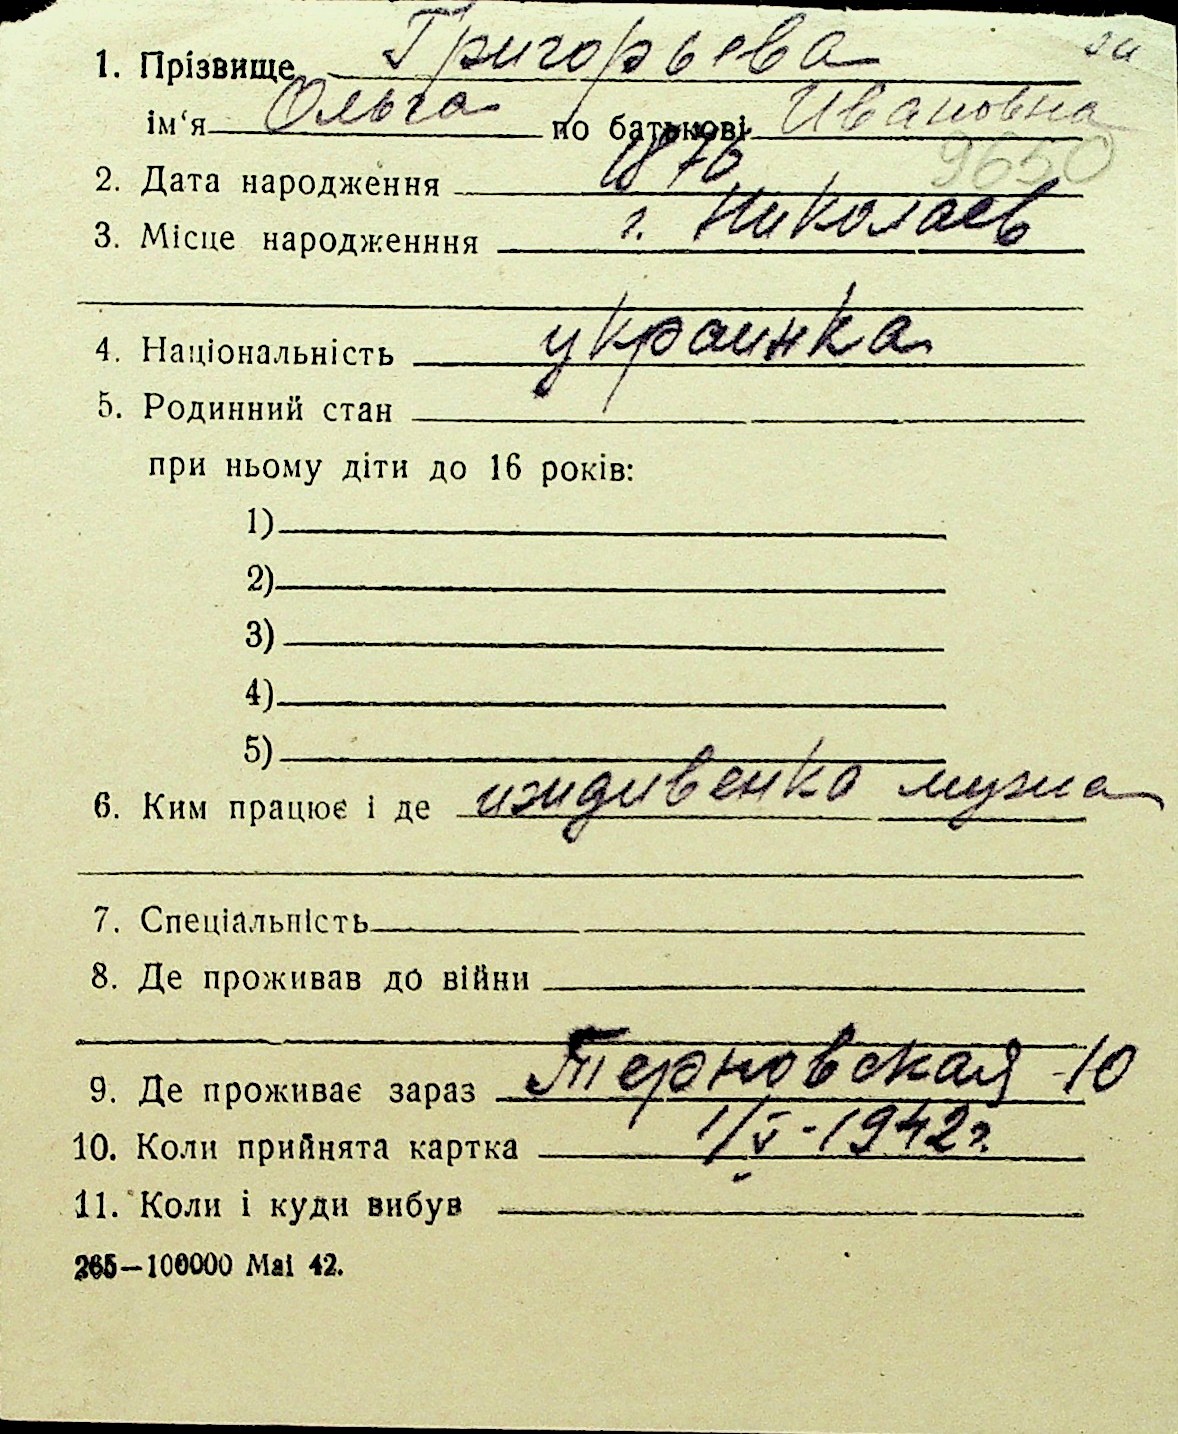 1. Прізвище Григорьева
ім‘я Ольга по батькові Ивановна
9650
2. Дата народження 1876
3. Місце народженння г. Николаев
4. Національність украинка
5. Родинний стан
при ньому діти до 16 років:
1)
2)
3)
4)
5)
6. Ким працює і де иждивенка мужа
7. Спеціальність
8. Де проживав до війни
9. Де проживає зараз Терновская 10
10. Коли прийнята картка 1/V-1942г.
11. Коли і куди вибув
265—100000 Mai 42.